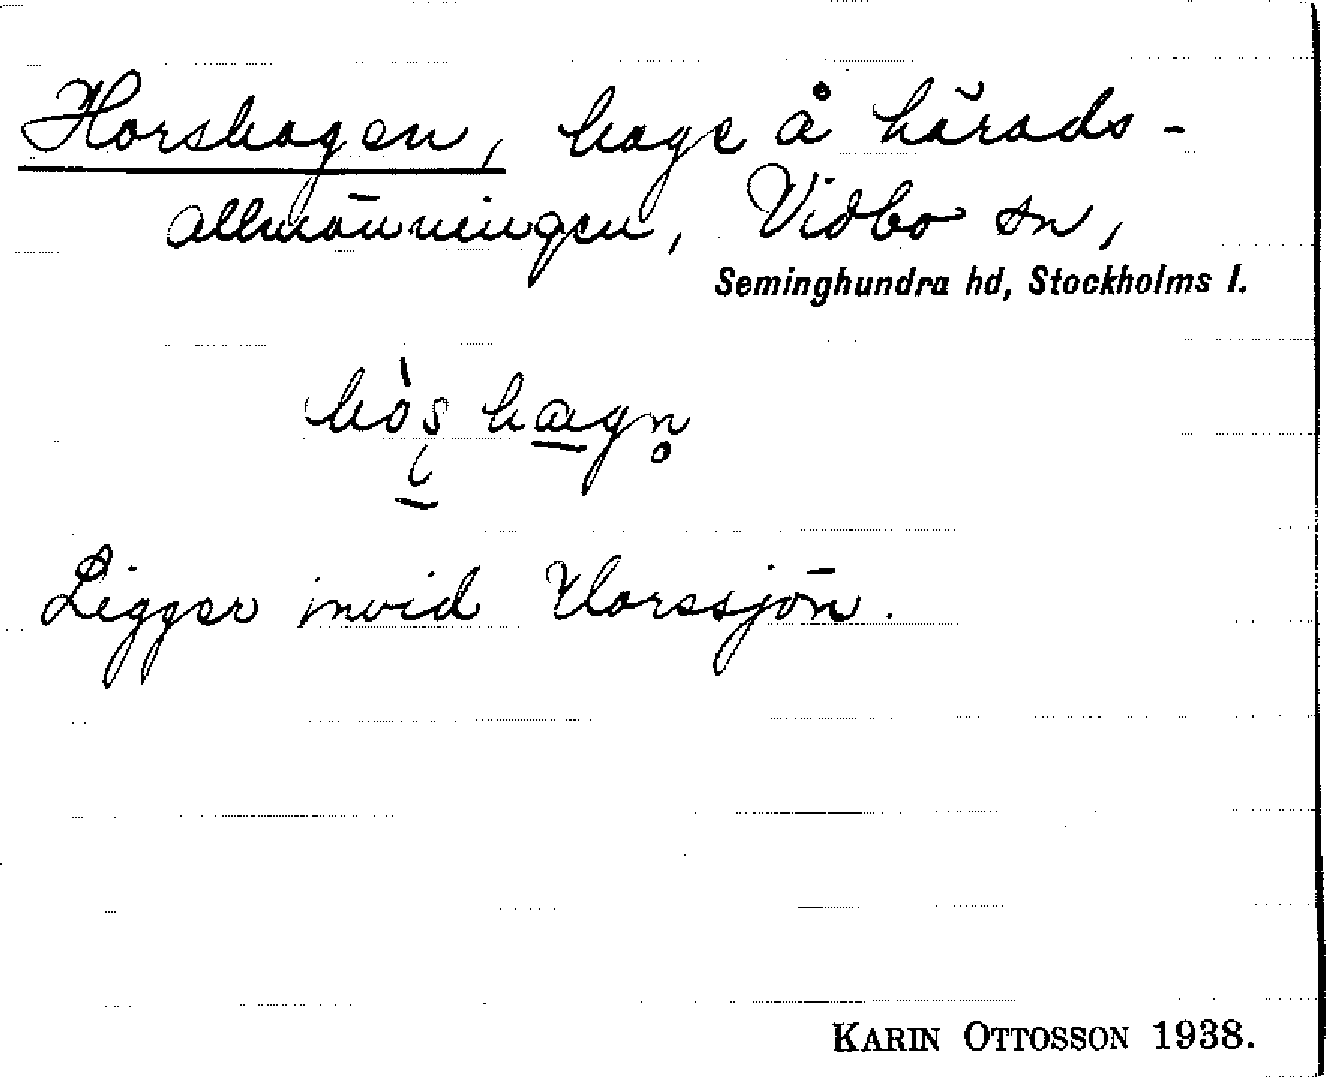 Horshagen, hage å härads-
allmänningen, Vidbo sn,
Seminghundra hd, Stockholms l.
hò̀ʂ hagn̥
Ligger invid Horssjön.
KARIN OTTOSSON 1938.